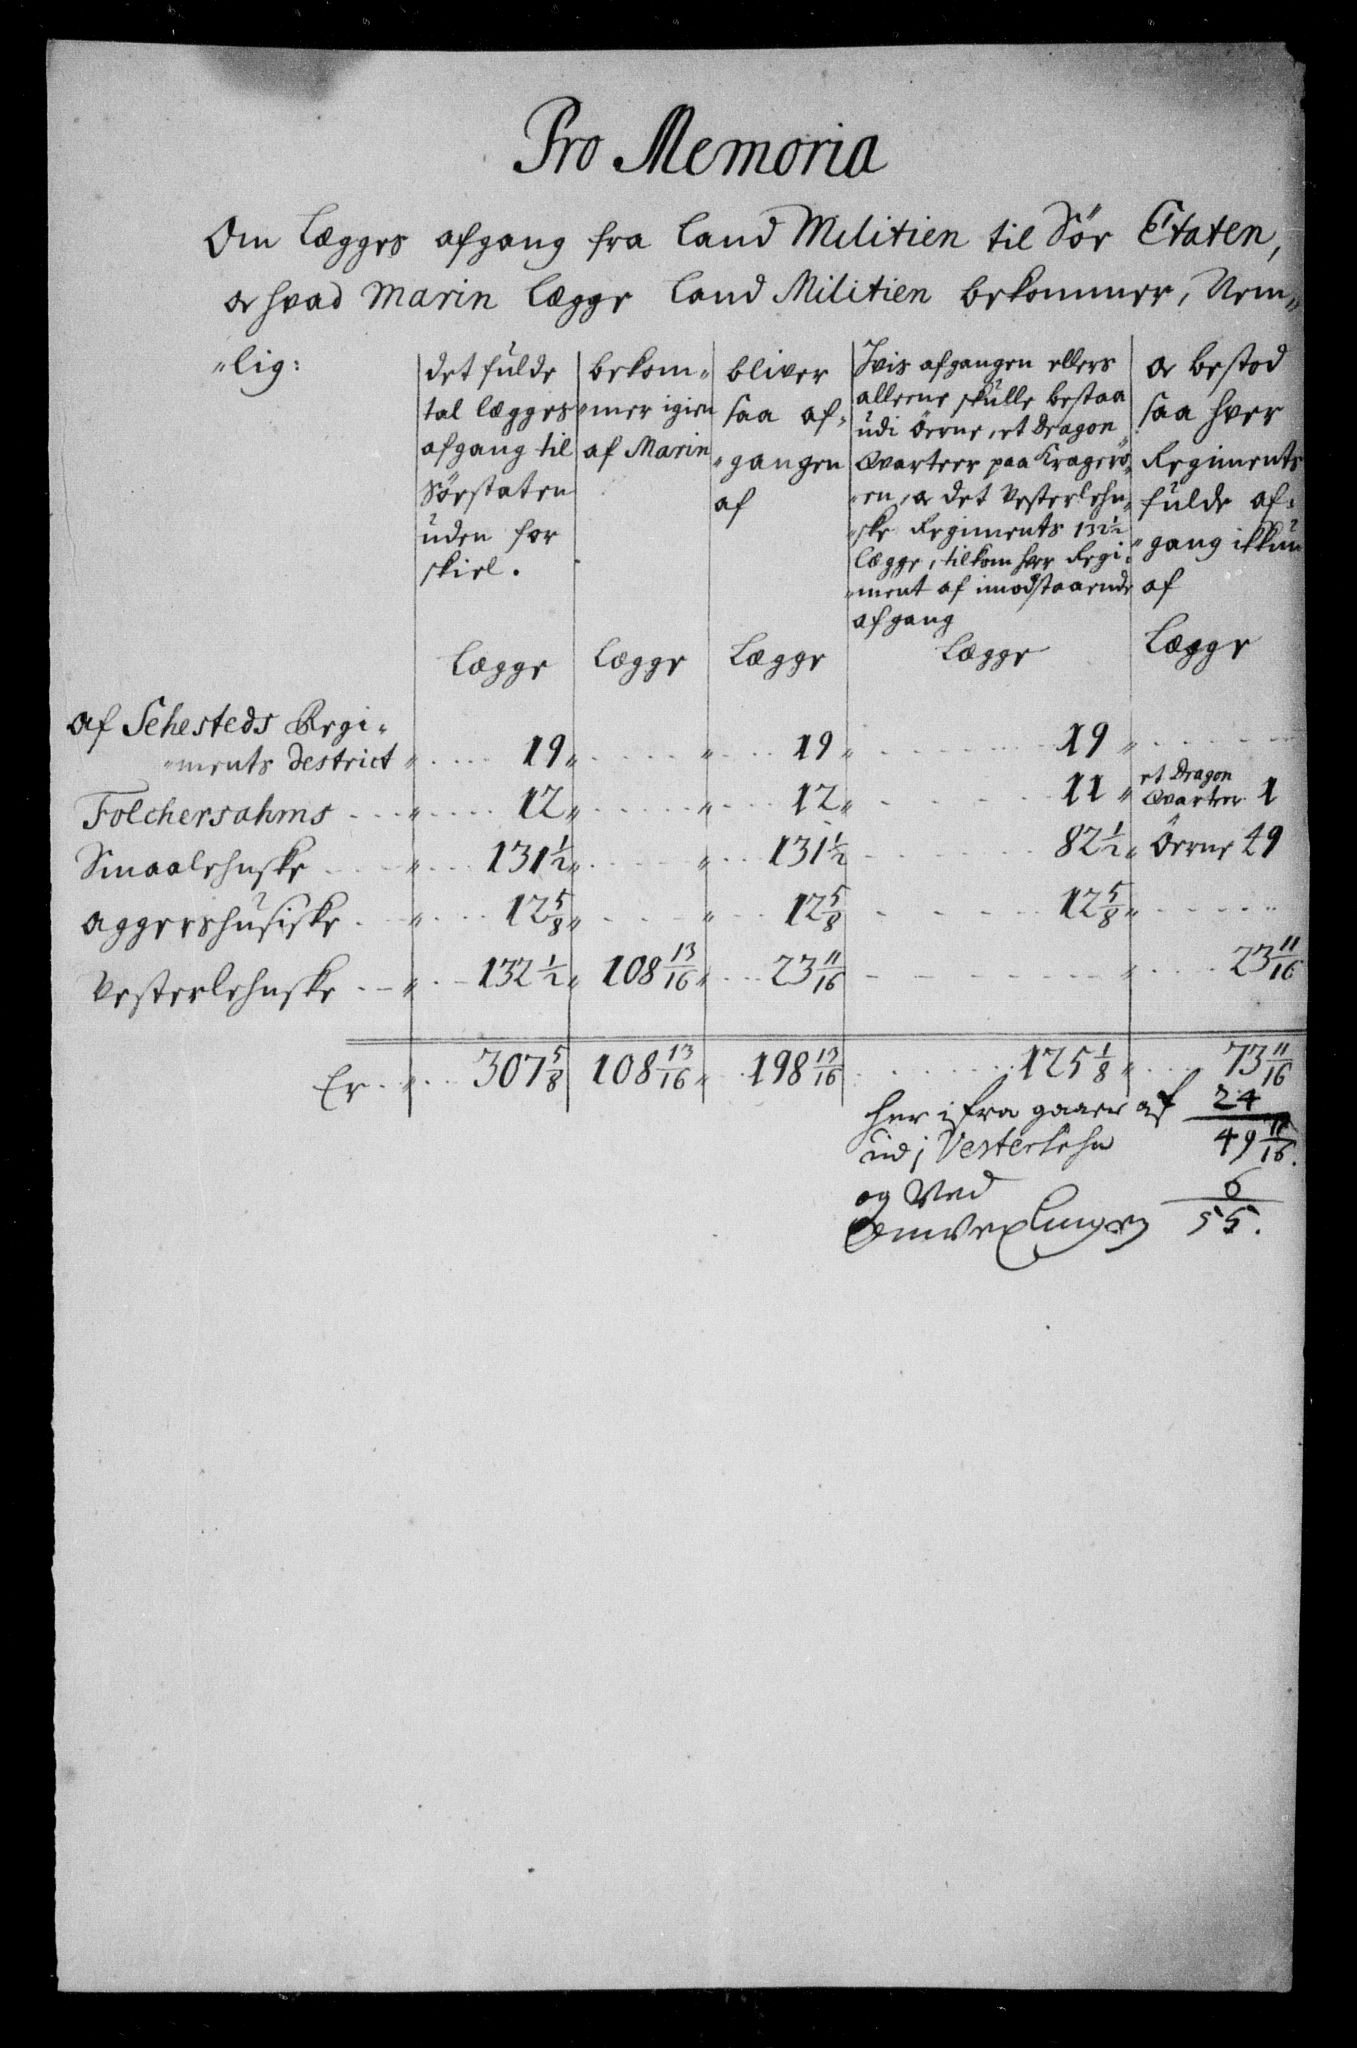 Pro Memoria
Om Lægges afgang fra Land Militien til Söe Etaten,
oc hvad Marin Lægge Land Militien bekommer, Nem„
„lig:
det fulde
tal lægges
afgang til
Söestaten
uden for
skiel.
Lægge
bekom„
„mer igien
af Marin
Lægge
bliver
saa af„
„gangen
af
Lægge
Hvis afgangen ellers
alleene skulle bestaa
udi Öerne, et Dragon
Qvarteer paa Krageröe„
„en, oc det Vesterlehn„
„ske Regiments 132½
Lægge, tilkom hver Regi„
„ment af imodstaaende
afgang
Lægge
oc bestod
saa hver
Regiments
fulde af„
„gang ikkun
af
Lægge
Af Sehesteds Regi„
„ments District „ 19 „ „ 19 „ 19 „
Folchersahms „ 12 „ „ 12 „ 11 „ et Dragon Qvarteer 1
Smaalehnske „ 131½ „ „ 131½ 82½ „ Öerne 49
Aggershusiske „ 12 5/8 „ „ 12 5/8 12 5/8 „
Vesterlehnske „ 132½ „ 108 13/16 „ 23 11/16 „ 23 11/16
Er „ 307 5/8 108 13/16 „ 198 13/16 125 1/8 „ 73 11/16
her ifra gaaer af 24
ud i Vesterlehn 49 11/16.
og Ved 6
Omvexlingen 55.